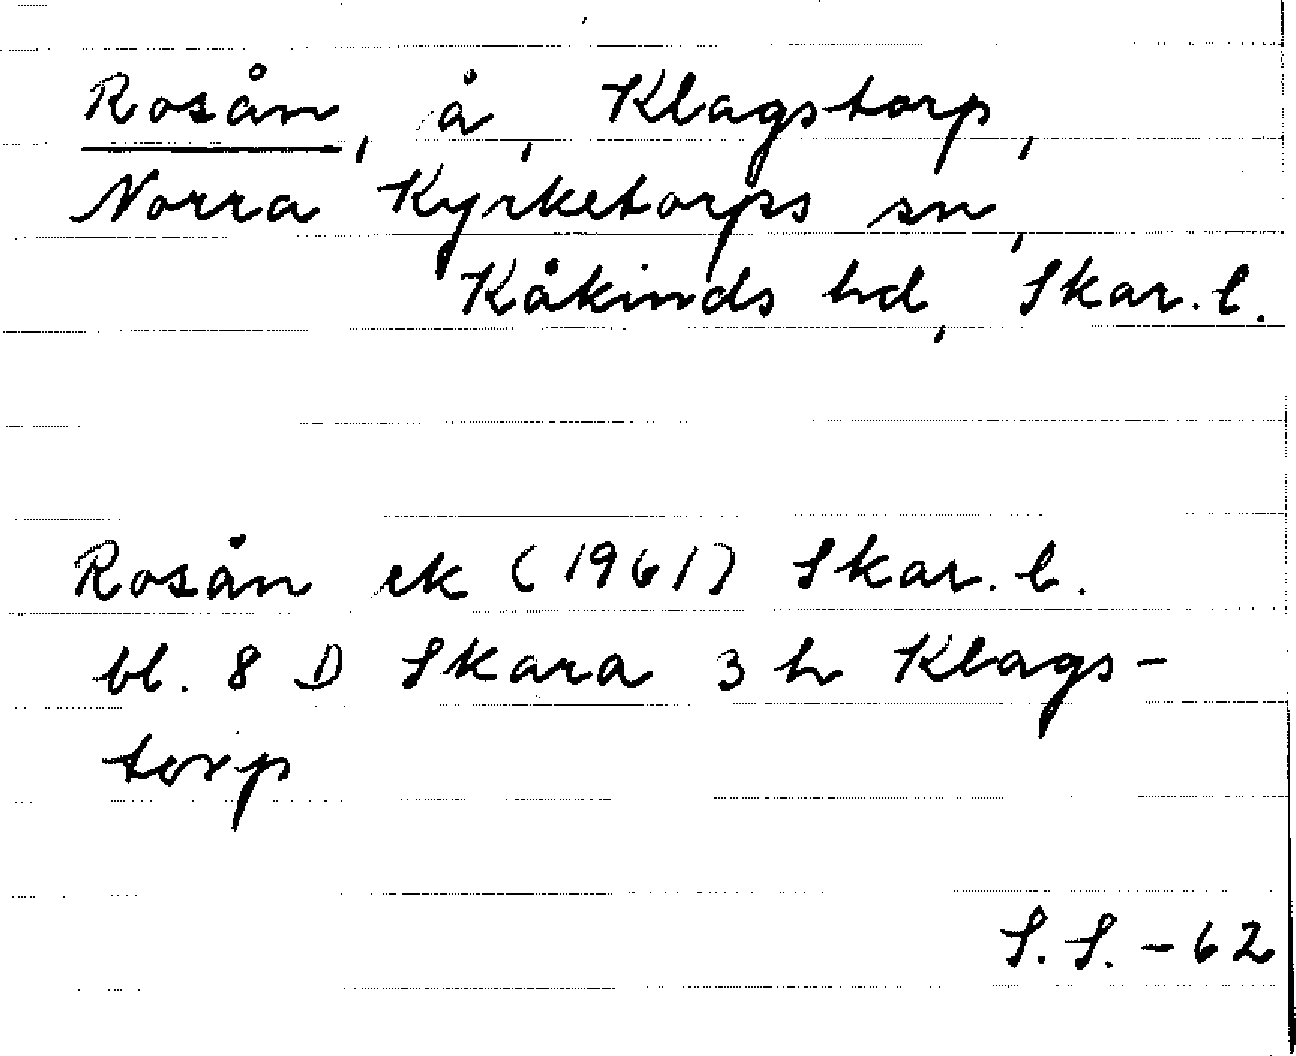 Rosån, å, Klagstorp,
Norra Kyrketorps sn,
Kåkinds hd, Skar. l.
Rosån ek (1961) Skar. l.
bl. 8 D Skara 3 h Klags-
torp
S. S. - 62